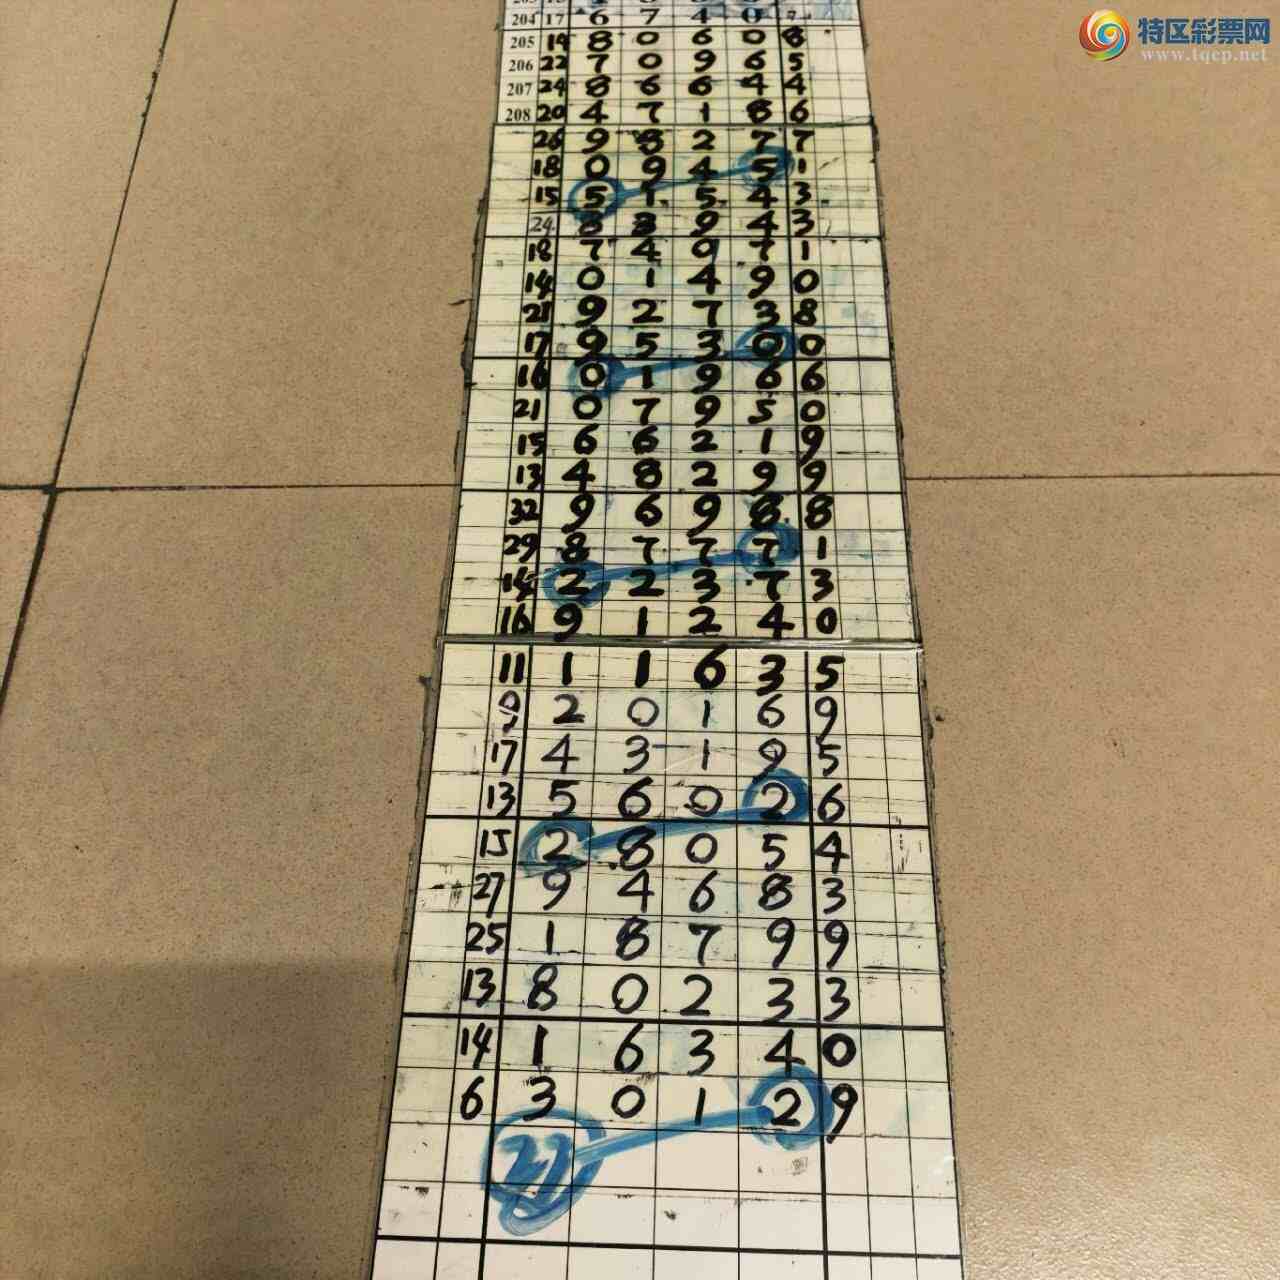 特区彩票网
www.tqcp.net
204 17 6 7 4 0
205 19 8 0 6 0 8
206 22 7 0 9 6 5
207 24 8 6 6 4 4
208 20 4 7 1 8 6
26 9 8 2 7 7
18 0 9 4 5 1
15 5 1 5 4 3
24 8 3 9 4 3
18 7 4 0 7 1
14 0 1 4 9 0
21 9 2 7 3 8
17 9 5 3 0 0
16 0 1 9 6 6
21 0 7 9 5 0
15 6 6 2 1 9
13 4 8 2 9 9
32 9 6 9 8 8
29 8 7 7 7 1
14 2 2 3 7 3
16 9 1 2 4 0
11 1 1 6 3 5
9 2 0 1 6 9
17 4 3 1 9 5
13 5 6 0 2 6
15 2 8 0 5 4
27 9 4 6 8 3
25 1 8 7 9 9
13 8 0 2 3 3
14 1 6 3 4 0
6 3 0 1 2 9
27